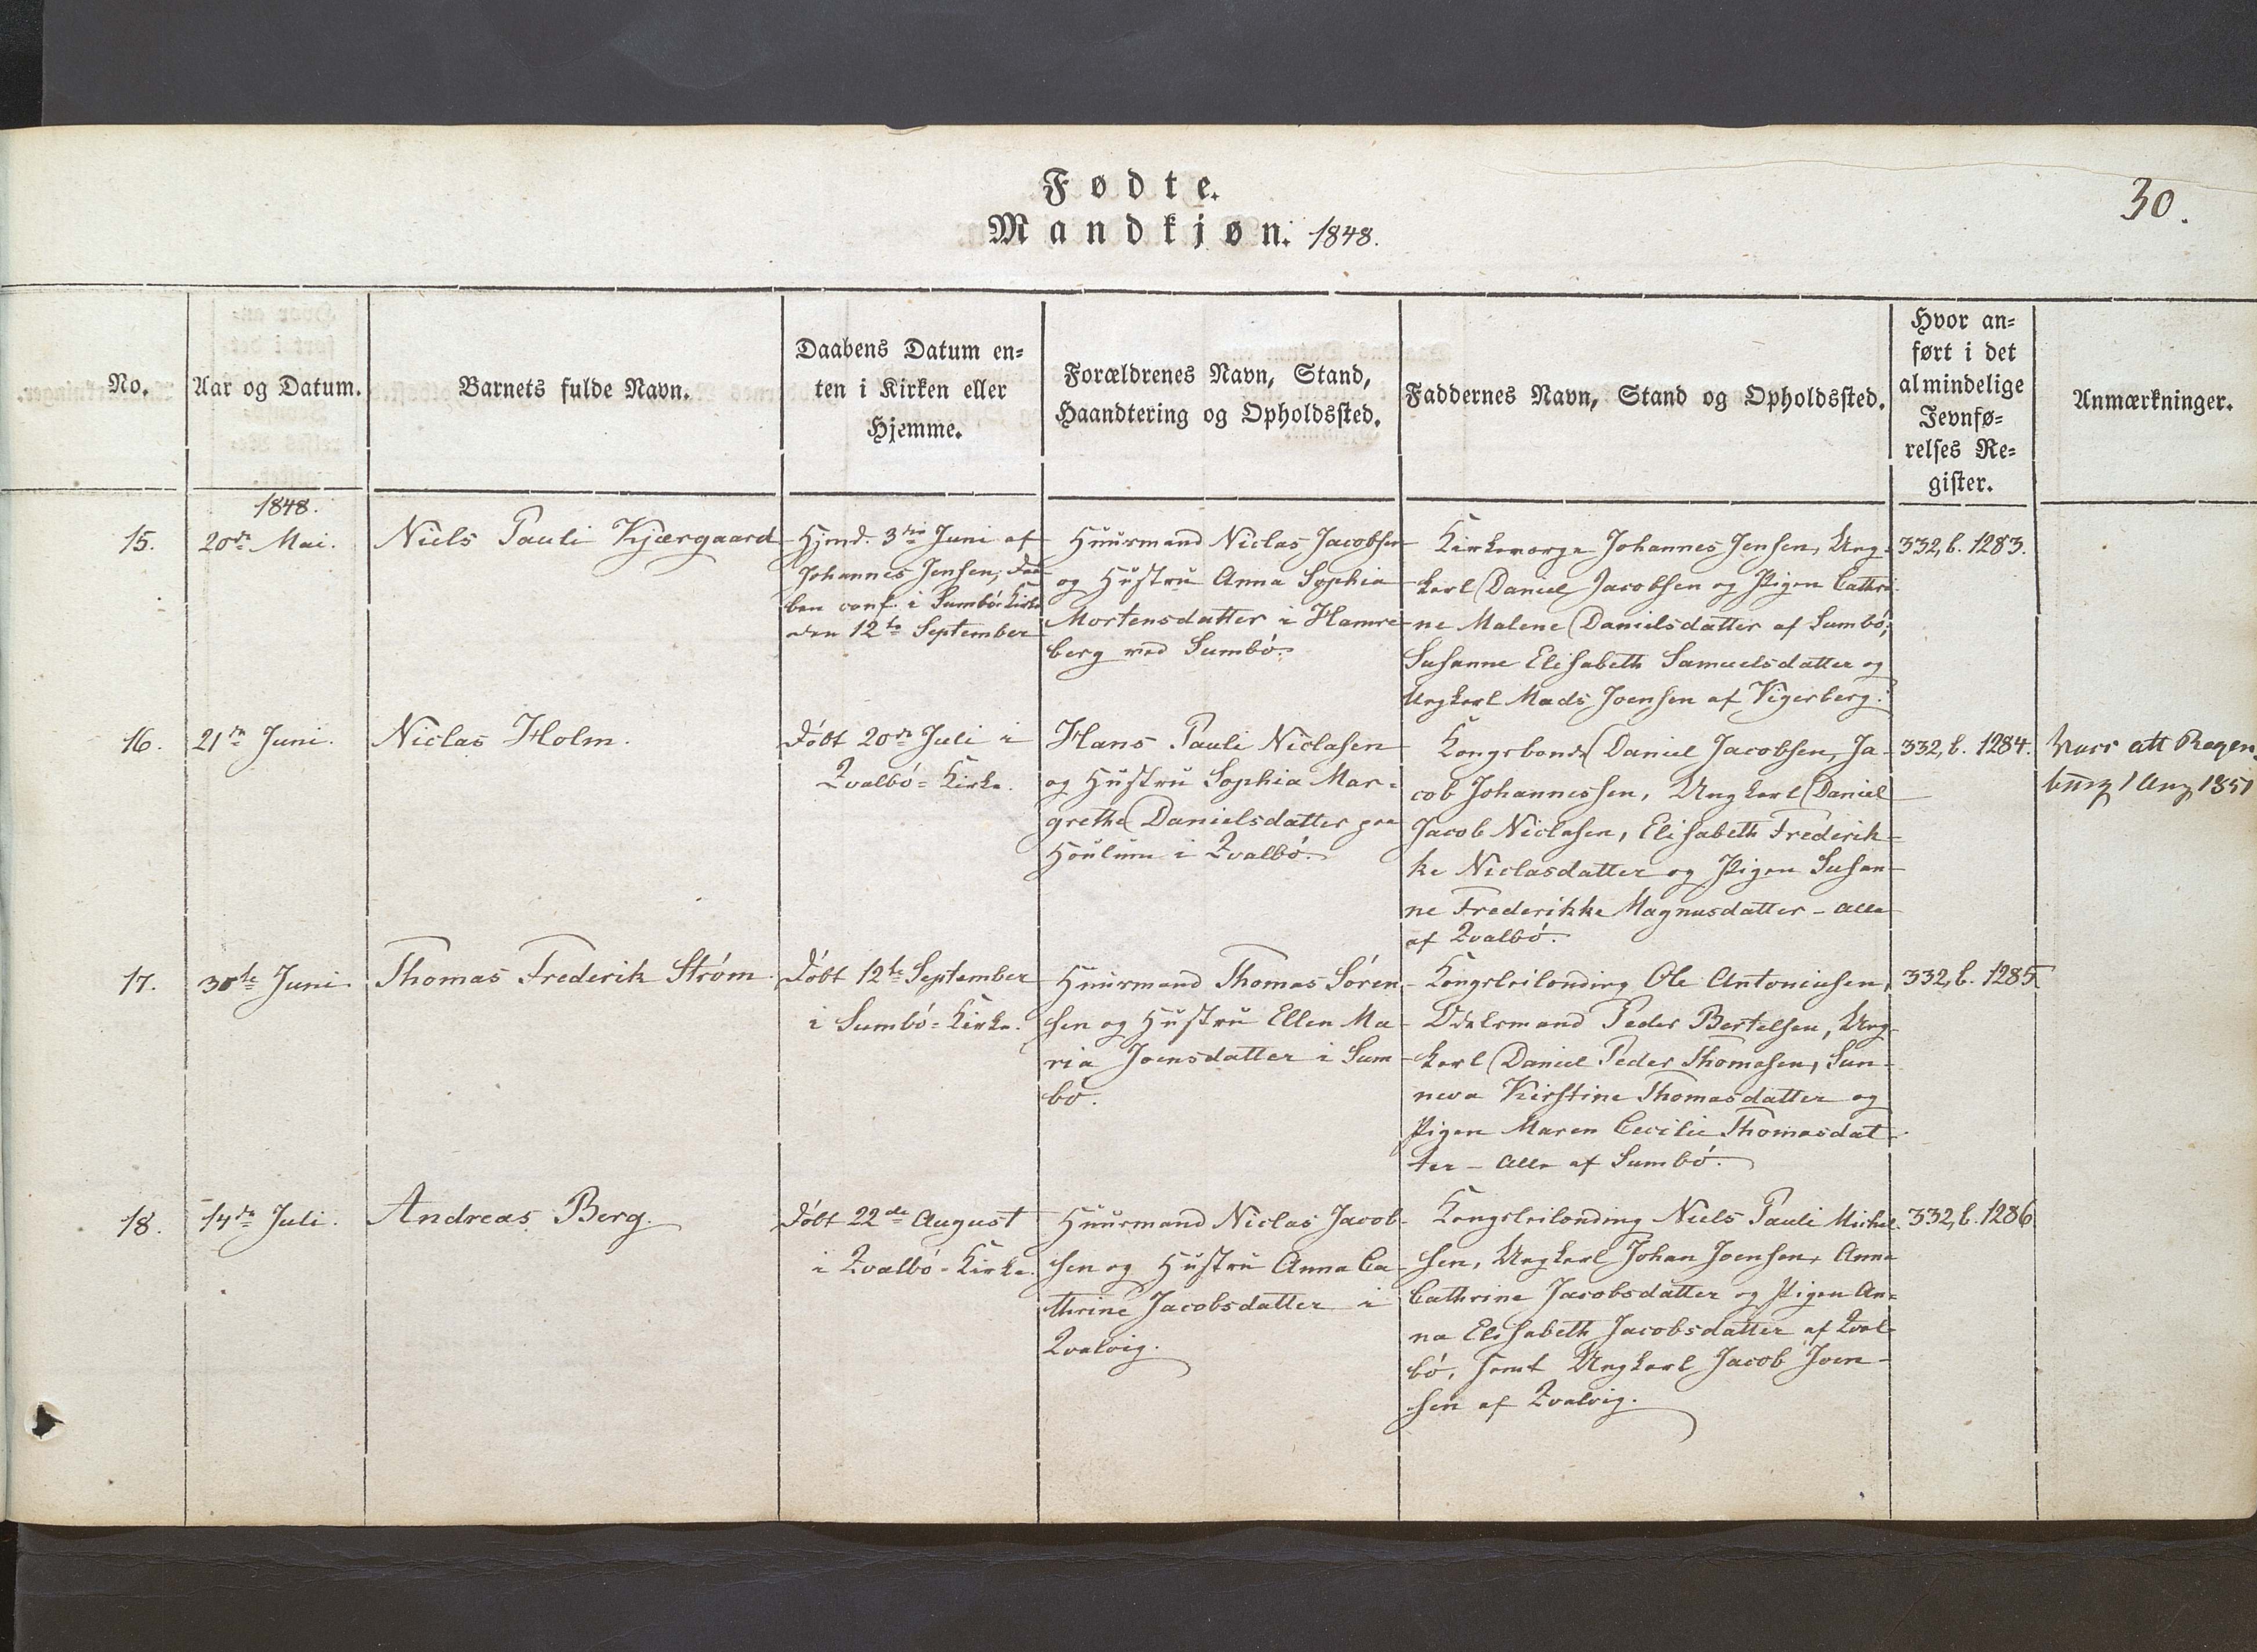 Fødte.
Mandkjøn. 1848.
30.
No.
Aar og Datum.
Barnets fulde Navn.
Daabens Datum en=
ten i Kirken eller
Hjemme.
Forældrenes Navn, Stand,
Haandtering og Opholdssted.
Faddernes Navn, Stand og Opholdssted.
Hvor an=
ført i det
almindelige
Jevnfø=
relses Re=
gister.
Anmærkninger.
1848.
15.
20de Mai.
Niels Pauli Kjærgaard
Hjmd. 3die Juni af
Johannes Jensen, Daa
ben conf. i Sumbö Kirke
den 12te September
Huusmand Niclas Jacobsen
og Hustru Anna Sophia
Mortensdatter i Hamre
berg ved Sumbö.
Kirkeværge Johannes Jensen, Ung-
karl Daniel Jacobsen og Pigen Cathri-
ne Malene Danielsdatter af Sumbö;
Susanne Elisabeth Samuelsdatter og
Ungkarl Mads Joensen af Vigerberg.
332, b. 1283.
16.
21de Juni.
Niclas Holm.
Döbt 20de Juli i
Qvalbö=Kirke.
Hans Pauli Niclasen
og Hustru Sophia Mar=
grethe Danielsdatter paa
i Qvalbö.
Kongsbonde Daniel Jacobsen, Ja-
cob Johannessen, Ungkarl Daniel
Jacob Niclasen, Elisabeth Frederik-
ke Niclasdatter og Pigen Susan-
ne Frederikke Magnusdatter - alle
af Qvalbö.
332, b. 1284.
1851
17.
30te Juni
Thomas Frederik Ström.
Döbt 12te September
i Sumbö=Kirke.
Huusmand Thomas Sören
sen og Hustru Ellen Ma
ria Joensdatter i Sum
bö.
Kongsleilænding Ole Antoniusen,
Odelsmand Peder Bertelsen, Ung-
karl Daniel Peder Thomasen, Sun-
neva Kirstine Thomasdatter og
Pigen Maren Cecilie Thomasdat-
ter - alle af Sumbö.
332, b. 1285.
18.
14de Juli.
Andreas Berg.
Döbt 22de August
i Qvalbö=Kirke.
Huusmand Niclas Jacob-
sen og Hustru Anna Ca-
thrine Jacobsdatter i
Qvalvig.
Kongsleilænding Niels Pauli Michel-
sen, Ungkarl Johan Joensen, Anna
Cathrine Jacobsdatter og Pigen An=
na Elisabeth Jacobsdatter af Qval-
bö, samt Ungkarl Jacob Joen-
sen af Qvalvig.
332, b. 1286.